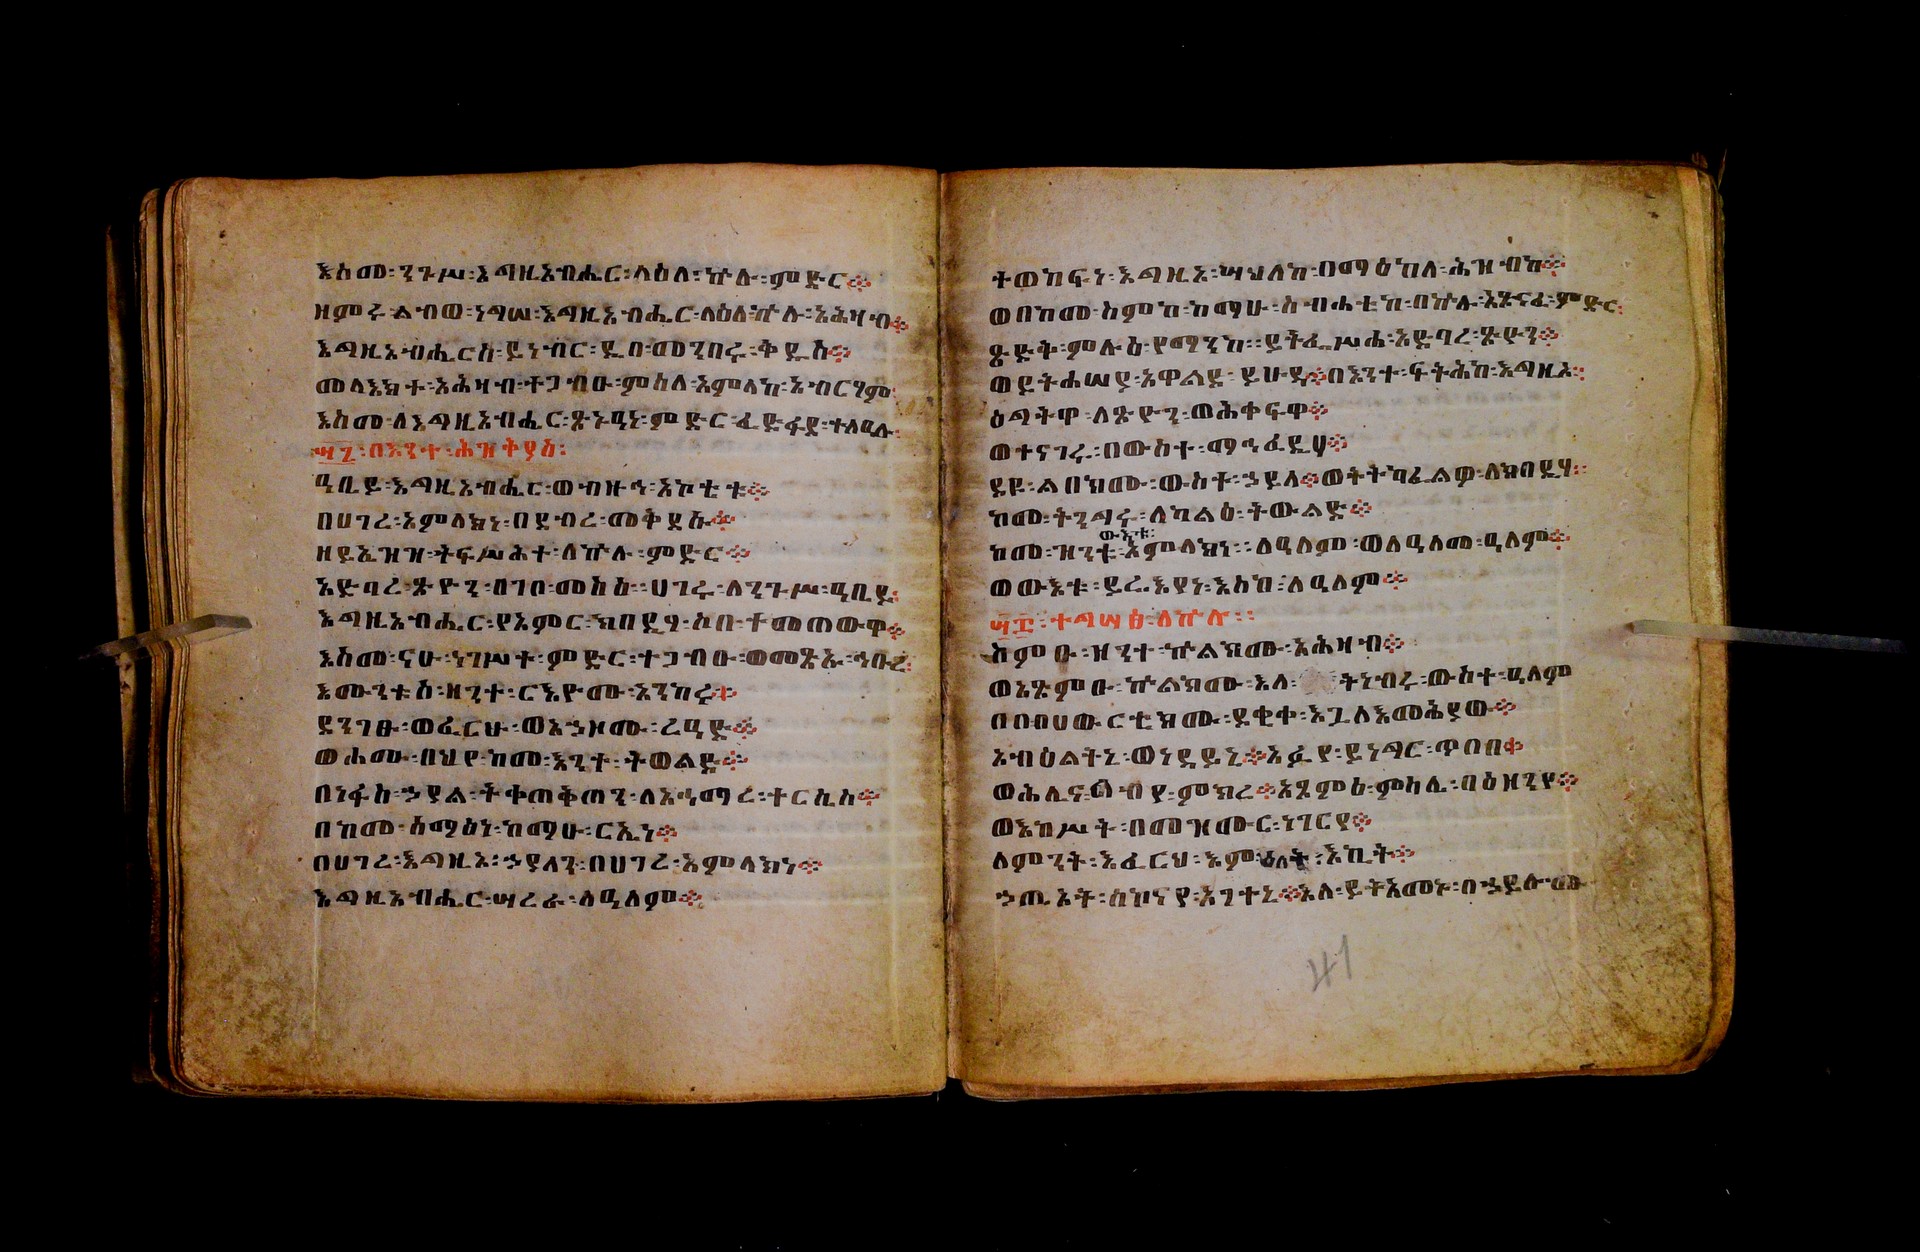 እስመ፡ንጉሥ፡እግዚአብሔር፡ላዕለ፡ኵሉ፡ምድር፨
ዘምሩ፡ልብወ፡ነግሠ፡እግዚአብሔር፡ላዕለ፡ኵሉ፡አሕዛብ፨
እግዚአብሔርሰ፡ይነብር፡ዲበ፡መንበሩ፡ቅዱስ፨
መላእክተ፡አሕዛብ፡ተጋብኡ፡ምስለ፡አምላከ፡አብርሃም፡
እስመ፡ለእግዚአብሔር፡ጽኑዓነ፡ምድር፡ፈድፋደ፡ተለዓሉ፡
፵፯፡በእንተ፡ሕዝቅያስ፡
ዓቢይ፡እግዚአብሔር፡ወብዙኅ፡አኰቴቱ፨
በሀገረ፡አምላክነ፡በደብረ፡መቅደሱ፨
ዘይኤዝዝ፡ትፍሥሕተ፡ለኵሉ፡ምድር፨
አድባረ፡ጽዮን፡በገቦ፡መስዕ፡፡ሀገሩ፡ለንጉሥ፡ዓቢይ፡
እግዚአብሔር፡የአምር፡ክበዲሃ፡ሶበ፡ተመጠውዋ፨
እስመ፡ናሁ፡ነገሥተ፡ምድር፡ተጋብኡ፡ወመጽኡ፡ኅቡረ፡
እሙንቱሰ፡ዘንተ፡ርእዮሙ፡አንከሩ፨
ደንገፁ፡ወፈርሁ፡ወአኃዞሙ፡ረዓድ፨
ወሐሙ፡በህየ፡ከመ፡እንተ፡ትወልድ፨
በነፋስ፡ኃያል፡ትቀጠቅጠን፡ለአሕማረ፡ተርሴስ፨
በከመ፡ሰማዕነ፡ከማሁ፡ርኢነ፨
በሀገረ፡እግዚአ፡ኃያላን፡በሀገረ፡አምላክነ፨
እግዚአብሔር፡ሣረራ፡ለዓለም፨
ተወከፍነ፡እግዚኦ፡ሣህለከ፡በማዕከለ፡ሕዝብከ፨
ወበከመ፡ስምከ፡ከማሁ፡ስብሐቲከ፡በኵሉ፡አጽናፈ፡ምድር፡
ጽድቅ፡ምሉዕ፡የማንከ፡፡ይትፌሥሐ፡አድባረ፡ጽዮን፨
ወይትሐሠያ፡አዋልደ፡ይሁዳ፨በእንተ፡ፍትሕከ፡እግዚኦ፡
ዕግትዋ፡ለጽዮን፡ወሕቀፍዋ፨
ወተናገሩ፡በውስተ፡ማኅፈዲሃ፨
ደዩ፡ልበክሙ፡ውስተ፡ኃይላ፨ወትትካፈልዎ፡ለክበዲሃ፡፡
ከመ፡ትንግሩ፡ለካልዕ፡ትውልድ፨
ውእቱ፡
ከመ፡ዝንቱ፡አምላክነ፡፡ለዓለም፡ወለዓለመ፡ዓለም፨
ወውእቱ፡ይሬእየነ፡እስከ፡ለዓለም፨
፵፰፡ተግሣፅ፡ለኵሉ፡፡
ስምዑ፡ዝንተ፡ኵልክሙ፡አሕዛብ፨
ወአጽምዑ፡ኵልክሙ፡እለ፡ትነብሩ፡ውስተ፡ዓለም
በበበሀውርቲክሙ፡ደቂቀ፡እጓለእመሕያው፨
አብዕልትኒ፡ወነዳይኒ፨አፉየ፡ይነግር፡ጥበበ፨
ወሕሊና፡ልብየ፡ምክረ፨አጸምዕ፡ምሳሌ፡በዕዝንየ፨
ወእከሥት፡በመዝሙር፡ነገርየ፨
ለምንት፡እፈርህ፡እምዕለት፡እኪት፨
ኃጢአት፡ሰኰናየ፡አገተኒ፨እለ፡ይትአመኑ፡በኃይሎሙ